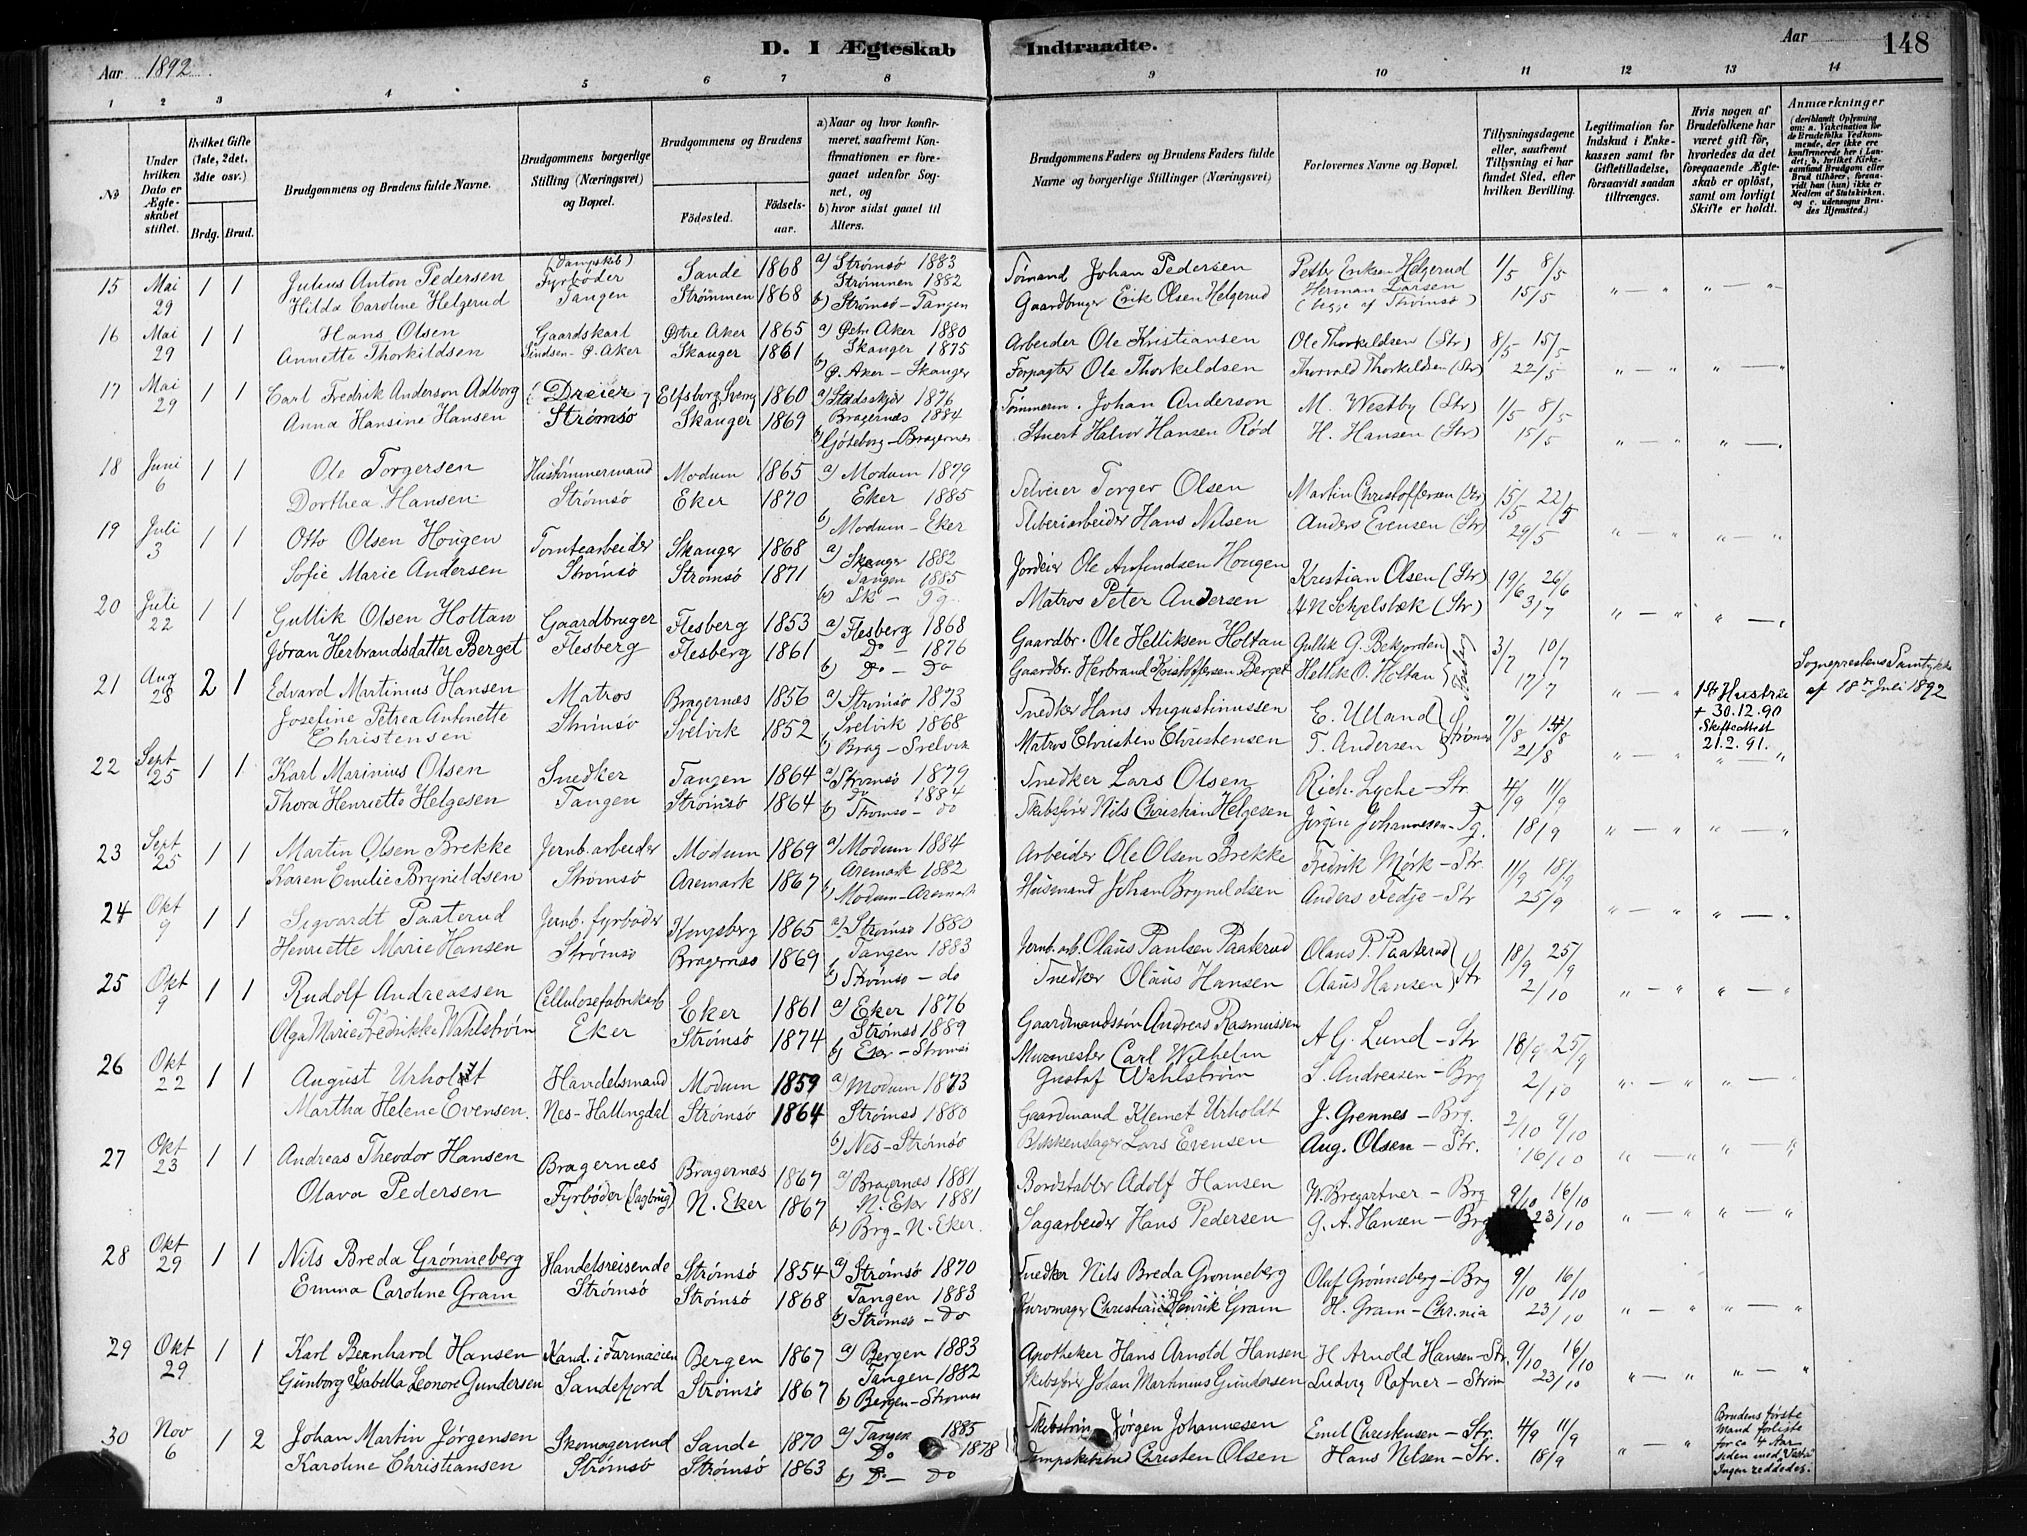 Aar 1892.
D. I Ægteskab Indtraadte.
Aar
148
1 2 3 4 5 6 7 8 9 10 11 12 13 14
No
Under hvilken Dato er Ægteskabet stiftet.
Hvilket Gifte (1ste, 2det, 3die osv.)
Brdg. Brud.
Brudgommens og Brudens fulde Navne.
Brudgommens borgerlige Stilling (Næringsvei) og Bopæl.
Brudgommens og Brudens
Fødested. Fødselsaar.
a) Naar og hvor konfirmeret, saafremt Konfirmationen er foregaaet udenfor Sognet, og
b) hvor sidst gaaet til Alters.
Brudgommens Faders og Brudens Faders fulde Navne og borgerlige Stillinger (Næringsvei)
Forlovernes Navne og Bopæl.
Tillysningsdagene eller, saafremt Tillysning ei har fundet Sted, efter hvilken Bevilling.
Legitimation for Indskud i Enkekassen samt for Giftetilladelse, forsaavidt saadan tiltrænges.
Hvis nogen af Brudefolkene har været gift før, hvorledes da det foregaaende Ægteskab er opløst, samt om lovligt Skifte er holdt.
Anmærkninger
(deriblandt Oplysning om: a. Vakcination for de Brudefolks Vedkommende, der ikke ere konfirmerede her i Landet; b. hvilket Kirkesamfund Brudgom eller Brud tilhører, forsaavidt han (hun) ikke er Medlem af Statskirken, og c. udensogns Brudes Hjemsted.)
15 Mai 29 1 1 Julius Anton Pedersen (Dampskib) Fyrbøder Sande 1868 a) Strømsø 1883 Johan Pedersen Petter Eriksen Helgerud 1/5 8/5
Hilda Caroline Helgerud Tangen Strømmen 1868 Strømmen 1882 b) Strømsø - Tangen Gaardbruger Erik Olsen Helgerud Herman Larsen (begge af Strømsø) 15/5 " — " " — "
16 Mai 29 1 1 Hans Olsen Gaardskarl Østre Aker 1865 a) Østr. Aker 1880 Arbeider Ole Kristiansen Ole Thorkildsen (Str) 8/5 15/5
Annette Thorkildsen Sinsen - Ø. Aker Skauger 1861 Skauger 1875 b) Ø. Aker - Skauger Forpagter Ole Thorkildsen Thorvald Thorkildsen (Str) 22/5 " — " " — "
17 Mai 29 1 1 Carl Fredrik Anderson Adborg Dreier Elfsborg Sverig 1860 a) 1876 Tømmerm. Johan Anderson M. Westby (Str) 1/5 8/5
Anna Hansine Hansen Strømsø Skauger 1869 Bragernæs 1884 b) Gøteborg - Bragernæs Stuert Halvor Hansen Rød H. Hansen (Str) 15/5 " — " " — "
18 Juni 6 1 1 Ole Torgersen Hustømmermand Modum 1865 a) Modum 1879 Selveier Torger Olsen Martin Christoffersen (Str) 15/5 22/5
Dorthea Hansen Strømsø Eker 1870 Eker 1885 b) Modum - Eker Sliberiarbeider Hans Nilsen Anders Evensen (Str) 29/5 " — " " — "
19 Juli 3 1 1 Otto Olsen Hougen Tomtearbeider Skauger 1868 a) Skauger 1882 Jordeier Ole Amfindsen Hougen Kristian Olsen (Str) 19/6 26/6
Sofie Marie Andersen Strømsø Strømsø 1871 Tangen 1885 b) Sk - Tg. Matros Peter Andersen A N Schjelsbæk (Str) 3/7 " — " " — "
20 Juli 22 1 1 Gullik Olsen Holtan Gaardbruger Flesberg 1853 a) Flesberg 1868 Gaardbr. Ole Helliksen Holtan Gullik G. Bekjorden 3/7 10/7
Jøran Herbrandsdatter Berget Flesberg Flesberg 1861 Do 1876 b) Do - Do Gaardbr. Herbrand Kristoffersen Berget Hellik O. Holtan 17/7 " — " Sogneprestens Samtykke af 18de Juli 1892
21 Aug 28 2 1 Edvard Martinius Hansen Matros Bragernæs 1856 a) Strømsø 1873 Snedker Hans Augustinussen E. Ulland 7/8 14/8 1ste Hustru + 30.12.90 Skifteattest 21.2.91.
Josefine Petrea Antonette Christensen Strømsø Svelvik 1852 Svelvik 1868 b) Brag - Svelvik Matros Christen Christensen T. Andersen Strømsø 21/8 " — " " — "
22 Sept 25 1 1 Karl Marinius Olsen Snedker Tangen 1864 a) Strømsø 1879 Snedker Lars Olsen Rich. Lyche - Str. 4/9 11/9
Thora Henriette Helgesen Tangen Strømsø 1864 Do 1884 b) Strømsø - do Skibsfører Nils Christian Helgesen Jørgen Johannesen - Tg. 18/9 " — " " — "
23 Sept 25 1 1 Martin Olsen Brekke Jernb. arbeider Modum 1869 a) Modum 1884 Arbeider Ole Olsen Brekke Fredrik Mørk - Str. 11/9 18/9
Karen Emilie Brynildsen Strømsø Aremark 1867 Aremark 1882 b) Modum - Aremark Husmand Johan Brynildsen Anders Fedje - Str 25/9 " — " " — "
24 Okt 9 1 1 Sigvardt Paaterud Jernb. fyrbøder Kongsberg 1865 a) Strømsø 1880 Jernb. arb. Olaus Paulsen Paaterud Olaus P. Paaterud 18/9 25/9
Henriette Marie Hansen Strømsø Bragernæs 1869 Tangen 1883 b) Strømsø - do Snedker Olaus Hansen Olaus Hansen Str 2/10 " — " " — "
25 Okt 9 1 1 Rudolf Andreassen Cellulosefabrikarb Eker 1861 a) Eker 1876 Gaardmandssøn Andreas Rasmussen A G. Lund - Str 18/9 25/9
Olga Marie Fredrikke Wahlstrøm Eker Strømsø 1874 Strømsø 1889 b) Eker - Strømsø Murmester Carl Wilhelm Gustaf Wahlstrøm S. Andreasen - Brg 2/10 " — " " — "
26 Okt 22 1 1 August Urholdt Handelsmand Modum 1859 a) Modum 1873 Gaardmand Klemet Urholdt J. Grennes - Brg. 2/10 9/10
Martha Helene Evensen. Nes - Hallingdal Strømsø 1864 Strømsø 1880 b) Nes - Strømsø Blikkenslager Lars Evensen Aug. Olsen - Str. 16/10 " — " " "
27 Okt 23 1 1 Andreas Theodor Hansen Bragernæs Bragernæs 1867 a) Bragernæs 1881 Bordstabler Adolf Hansen W. Bregartner - Brg 9/10 16/10
Olava Pedersen Fyrbøder (Sagbrug) N. Eker 1867 N. Eker 1881 b) Brg - N. Eker. Sagarbeider Hans Pedersen G. A. Hansen - Brg 23/10 " — " " — "
28 Okt 29 1 1 Nils Breda Grønneberg Handelsreisende Strømsø 1854 a) Strømsø 1870 Snedker Nils Breda Grønneberg Oluf Grønneberg - Brg 9/10 16/10
Emma Caroline Gram Strømsø Strømsø 1868 Tangen 1883 b) Strømsø - Do Kurvmager Christian Henrik Gram H. Gram - Chr.nia 23/10 " — " " — "
29 Okt 29 1 1 Karl Bernhard Hansen Kand. i Farmacien Bergen 1867 a) Bergen 1883 Apotheker Hans Arnold Hansen H Arnold Hansen - Str. 9/10 16/10
Gunborg Ysabella Leonore Gundersen Sandefjord Strømsø 1867 Tangen 1882 b) Bergen - Strømsø Skibsfører Johan Martinius Gundersen Ludvig Rafner - Strøm 23/10 " — " " — "
30 Nov 6 1 2 Johan Martin Jørgensen Skomagersvend Sande 1870 a) Tangen 1885 Jørgen Johannesen Emil Christensen - Str. 4/9 11/9 Brudens første Mand forliste for ca 4 Aar siden med Ingen reddedes.
Karoline Christiansen Strømsø Strømsø 1863 Do 1878 b) Do - Do Christen Olsen Hans Nilsen - Str. 18/9 " — "